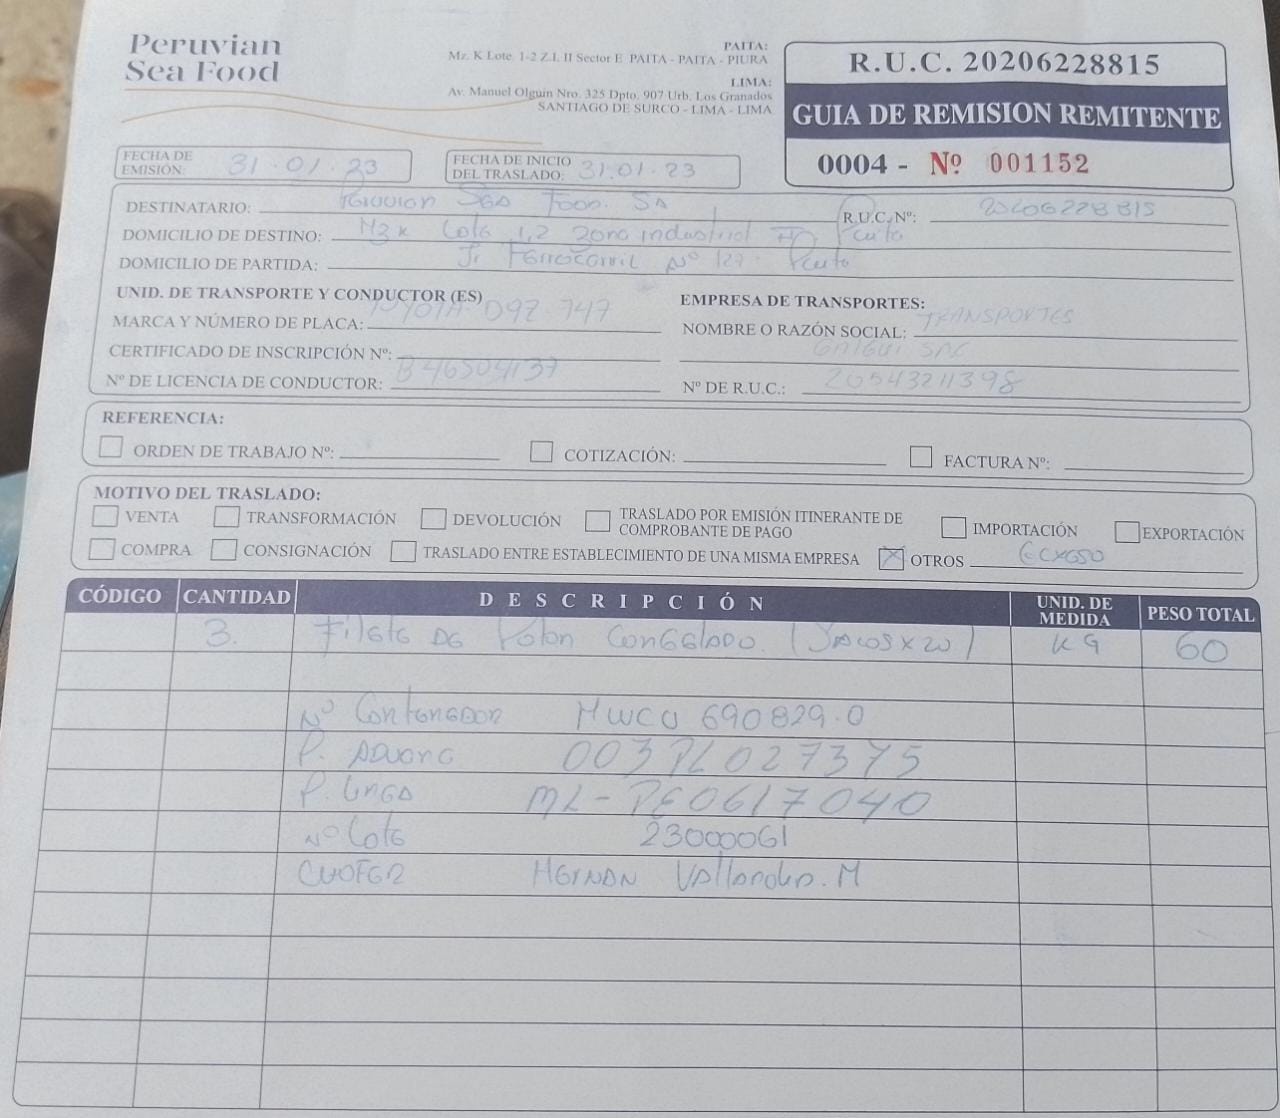 Peruvian
Sea Food
PAITA:
Mz. K Lote. 1-2 Z.I. II Sector E PAITA - PAITA - PIURA
LIMA:
Av. Manuel Olguin Nro. 325 Dpto. 907 Urb. Los Granados
SANTIAGO DE SURCO - LIMA - LIMA
R.U.C. 20206228815
GUIA DE REMISION REMITENTE
0004 - Nº 001152
FECHA DE EMISIÓN: 31.01.23
FECHA DE INICIO DEL TRASLADO: 31.01.23
DESTINATARIO: Peruvian Sea Food. SA R.U.C. Nº: 20206228815
DOMICILIO DE DESTINO: Mz K Lote 1,2 Zona industrial II Paita
DOMICILIO DE PARTIDA: Jr Ferrocarril Nº 127. Paita
UNID. DE TRANSPORTE Y CONDUCTOR (ES)
MARCA Y NÚMERO DE PLACA: TOYOTA D9Z-747
CERTIFICADO DE INSCRIPCIÓN Nº:
Nº DE LICENCIA DE CONDUCTOR: B46504137
EMPRESA DE TRANSPORTES:
NOMBRE O RAZÓN SOCIAL: TRANSPORTES
SAC
Nº DE R.U.C.: 20543211398
REFERENCIA:
ORDEN DE TRABAJO Nº: COTIZACIÓN: FACTURA Nº:
MOTIVO DEL TRASLADO:
VENTA TRANSFORMACIÓN DEVOLUCIÓN TRASLADO POR EMISIÓN ITINERANTE DE COMPROBANTE DE PAGO IMPORTACIÓN EXPORTACIÓN
COMPRA CONSIGNACIÓN TRASLADO ENTRE ESTABLECIMIENTO DE UNA MISMA EMPRESA OTROS
CÓDIGO CANTIDAD DESCRIPCIÓN UNID. DE MEDIDA PESO TOTAL
3. Filete de Congelado. (Sacos x 20) KG 60
Nº Contenedor MWCU 690829.0
P. Aduana 003PL027375
P. Linea ML-PE0617040
Nº Lote 23000061
Chofer Hernan M